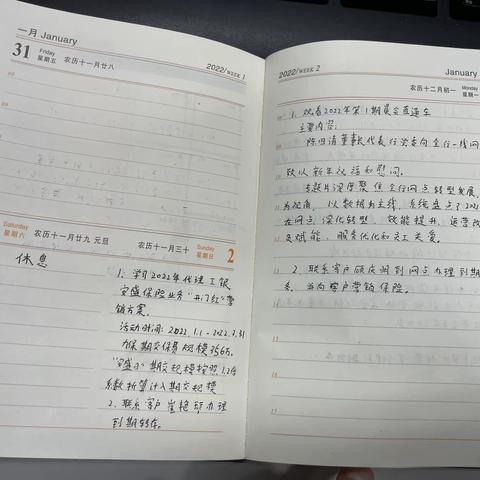 一月 January
31
Friday
星期五
农历十一月廿八
2022/WEEK 1
Saturday
星期六
农历十一月廿九 元旦
休息
农历十一月三十
Sunday
星期日
2
1、学习2022年代理工银
安盛保险业务“开门红”营
销方案。
活动时间：2022.1.1-2022.3.31
期交保费规模
期交规模按照1.2倍
系数折算计入期交规模
2、联系客户 办理
到期转存。
2022/WEEK 2
January
农历十二月初一
Monday
星期一
1、观看2022年第1期晨会直通车
主要内容：
陈四清董事长代表行党委向全行一线网
致以新年祝福和慰问。
专题片深度聚焦全行网点转型发展，
为视角，以数据为主线，系统盘点了2021
在网点 深化转型、效能提升、运营改
赋能、服务优化和员工关爱。
2、联系客户 到网点办理到期
为客户营销保险。